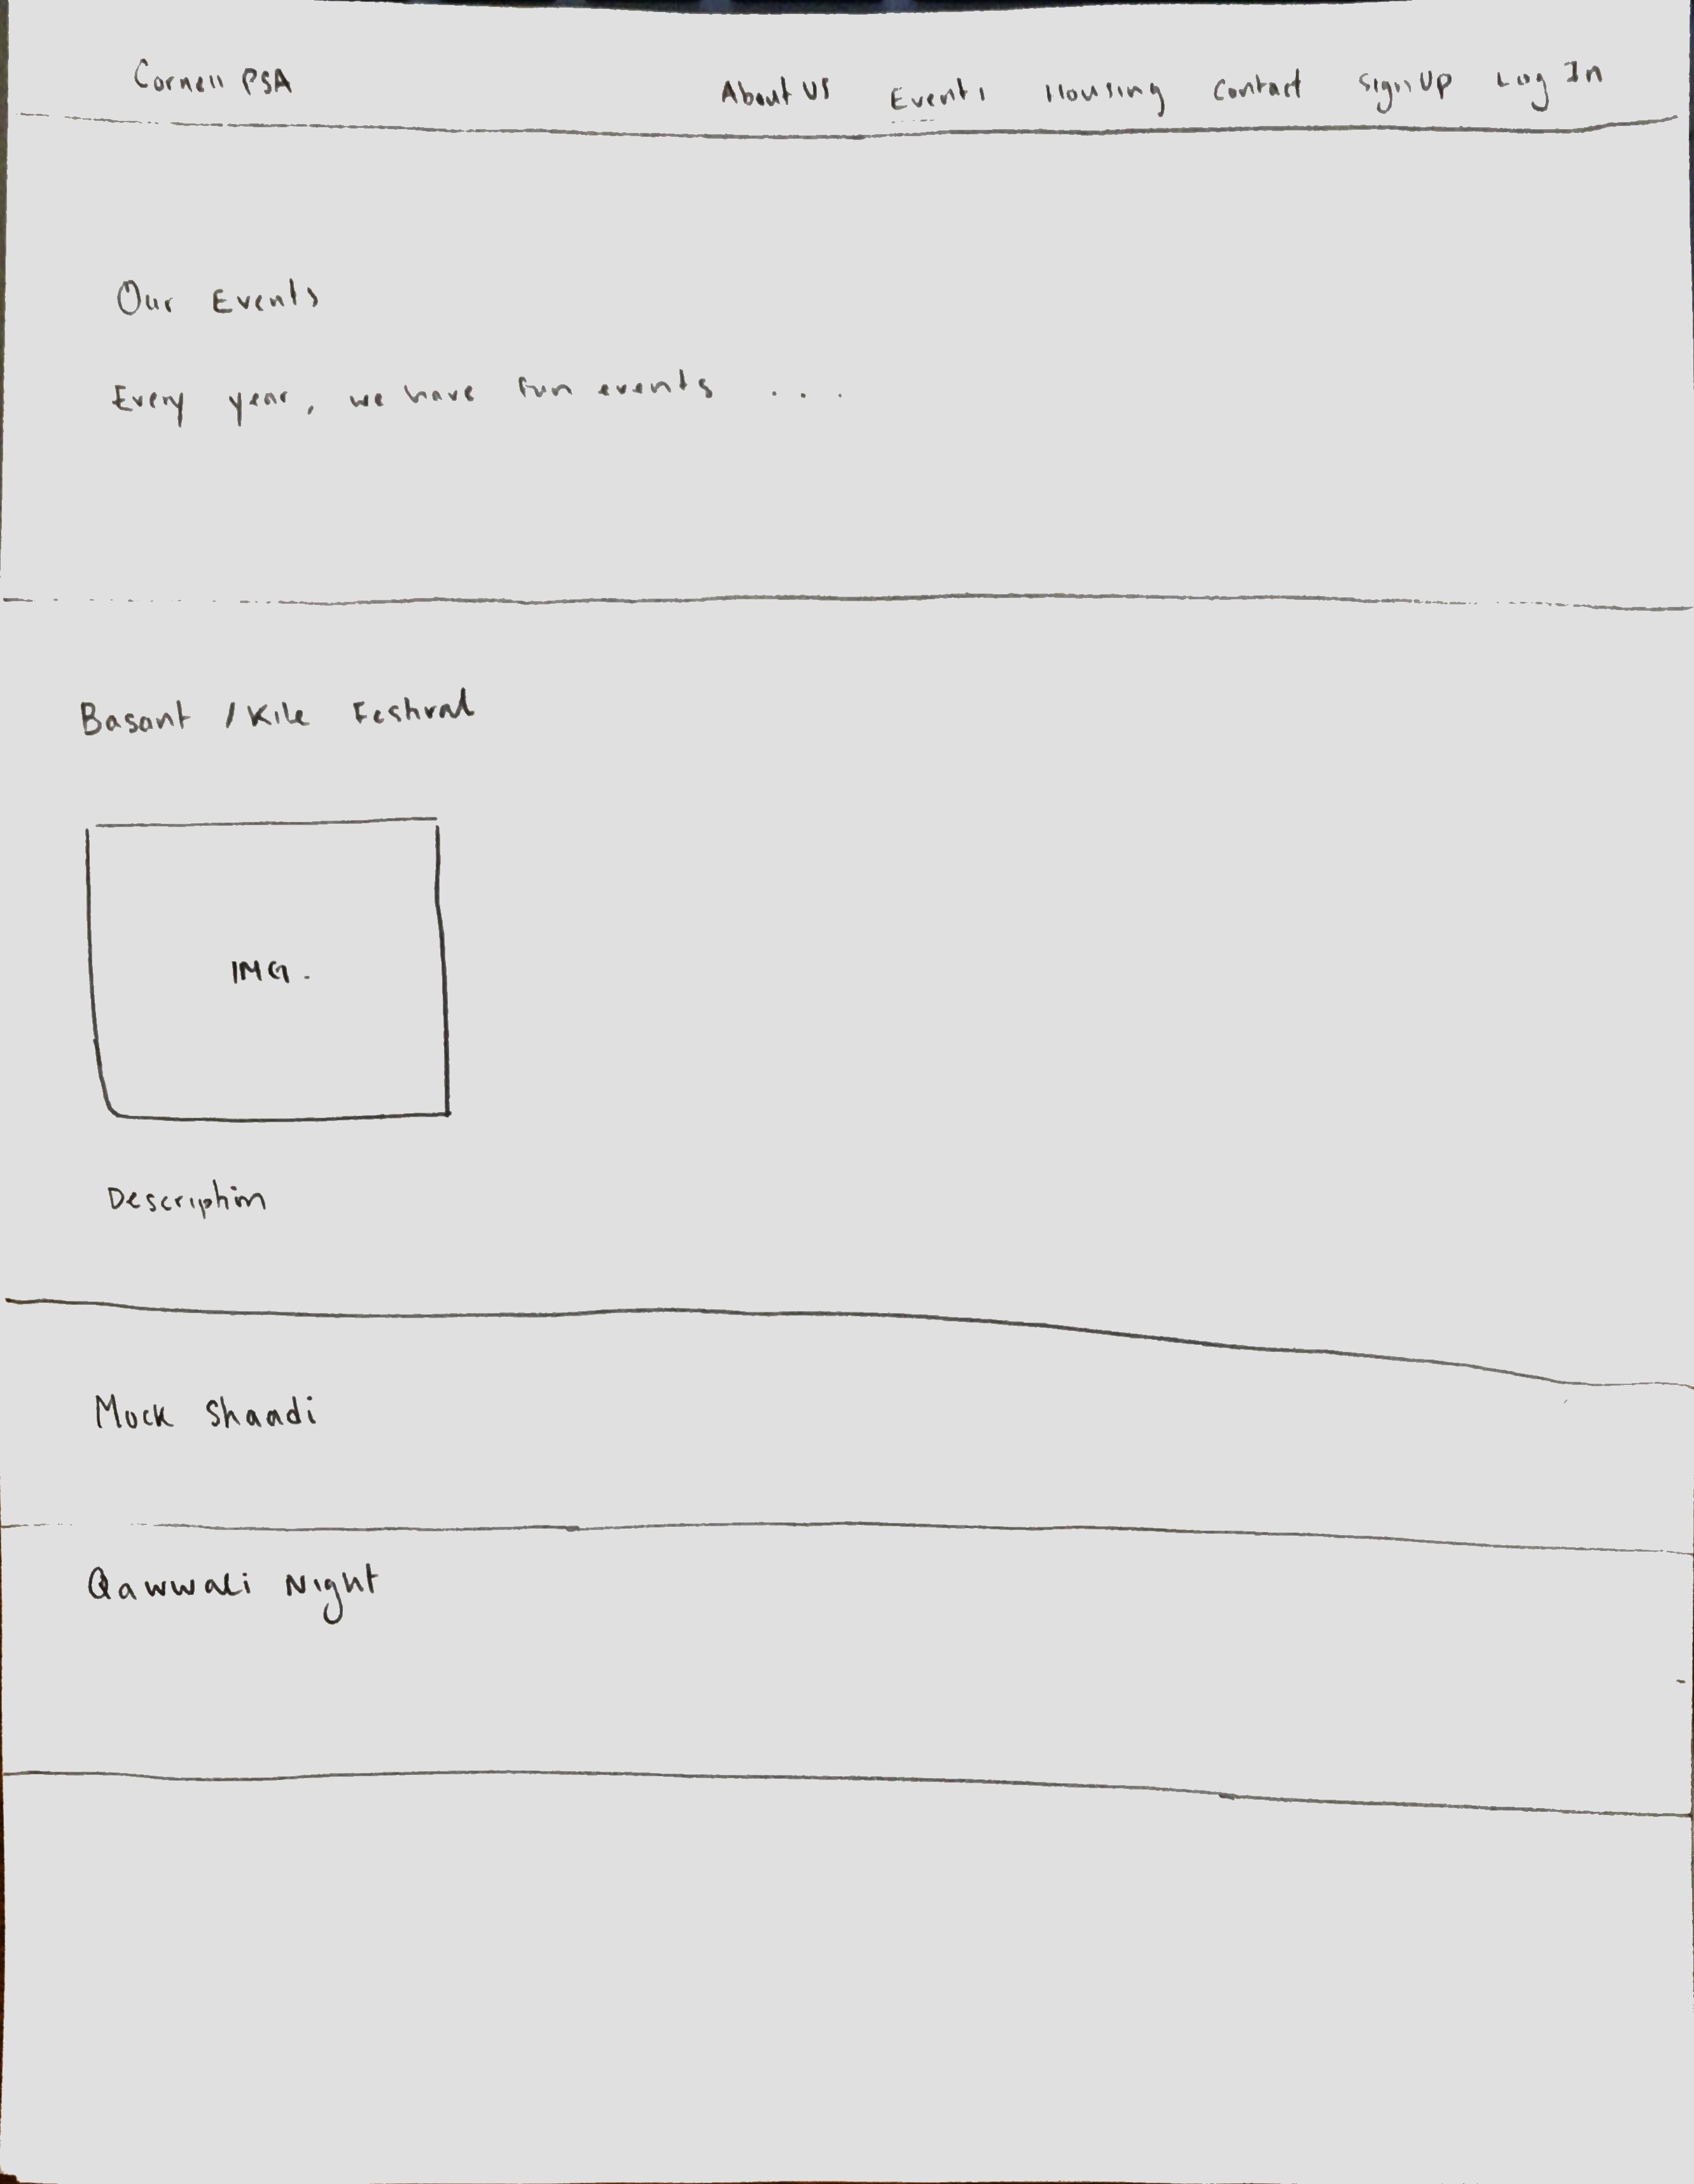 Cornell PSA About Us Events Housing Contact Sign Up Log In
Our Events
Every year, we have fun events ...
Basant / Kite Festival
IMG.
Description
Mock Shaadi
Qawwali Night